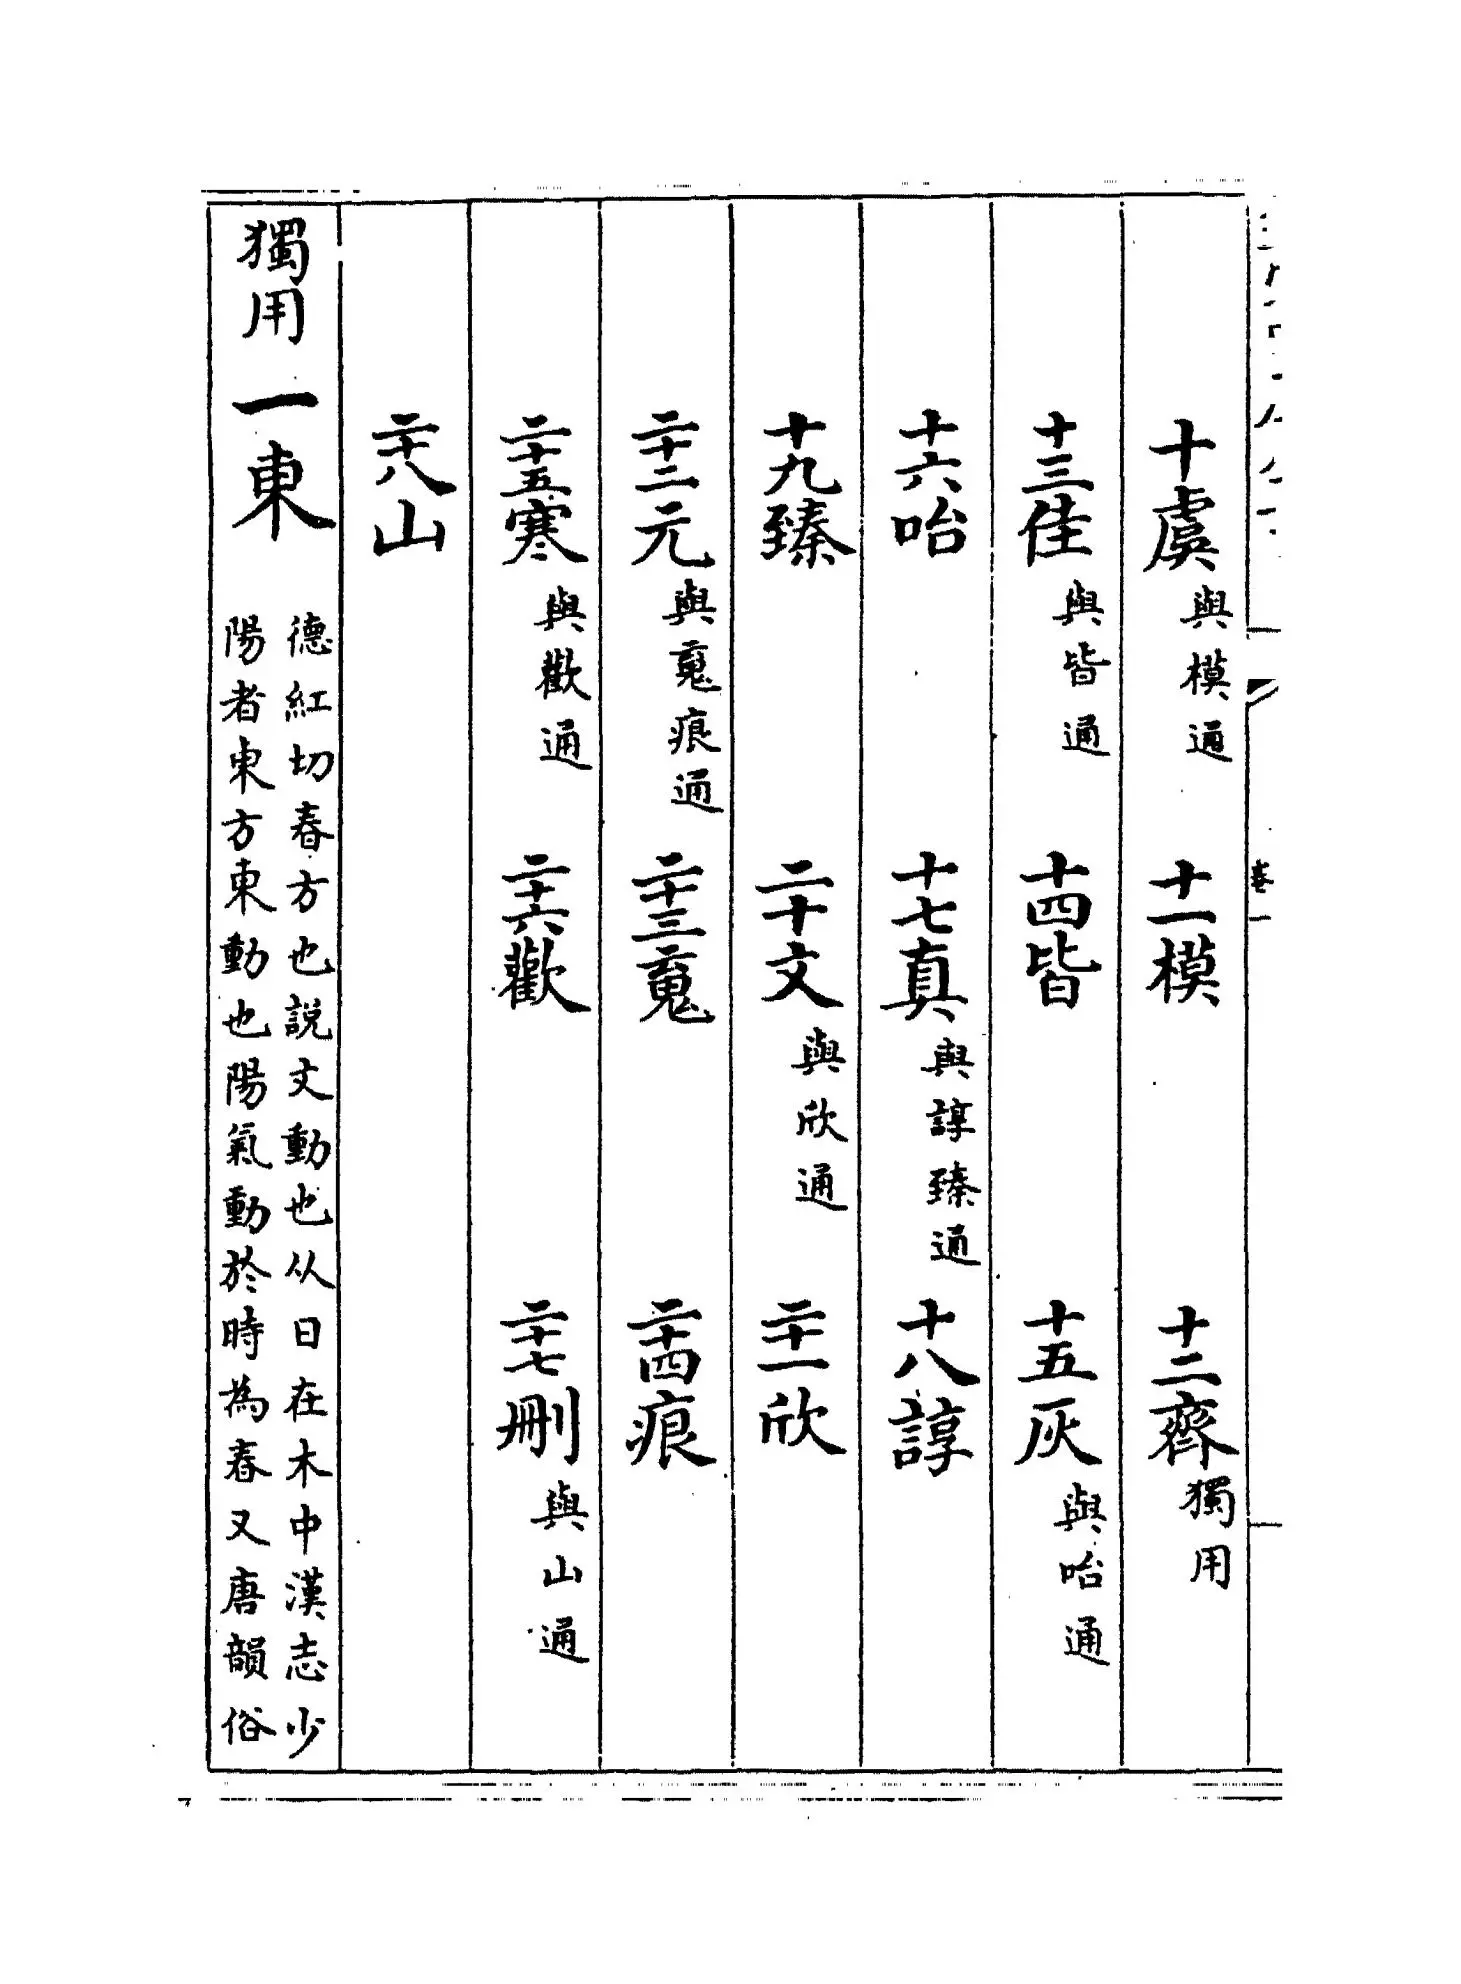 十虞與模通 十一模 十二齊獨用
十三佳與皆通 十四皆 十五灰與咍通
十六咍 十七真與諄臻通 十八諄
十九臻 二十文與欣通 二十一欣
二十二元與䰟痕通 二十三䰟 二十四痕
二十五寒與歡通 二十六歡 二十七刪與山通
二十八山
獨用 一東
德紅切春方也說文動也从日在木中漢志少
陽者東方東動也陽氣動於時為春又唐韻俗
卷一